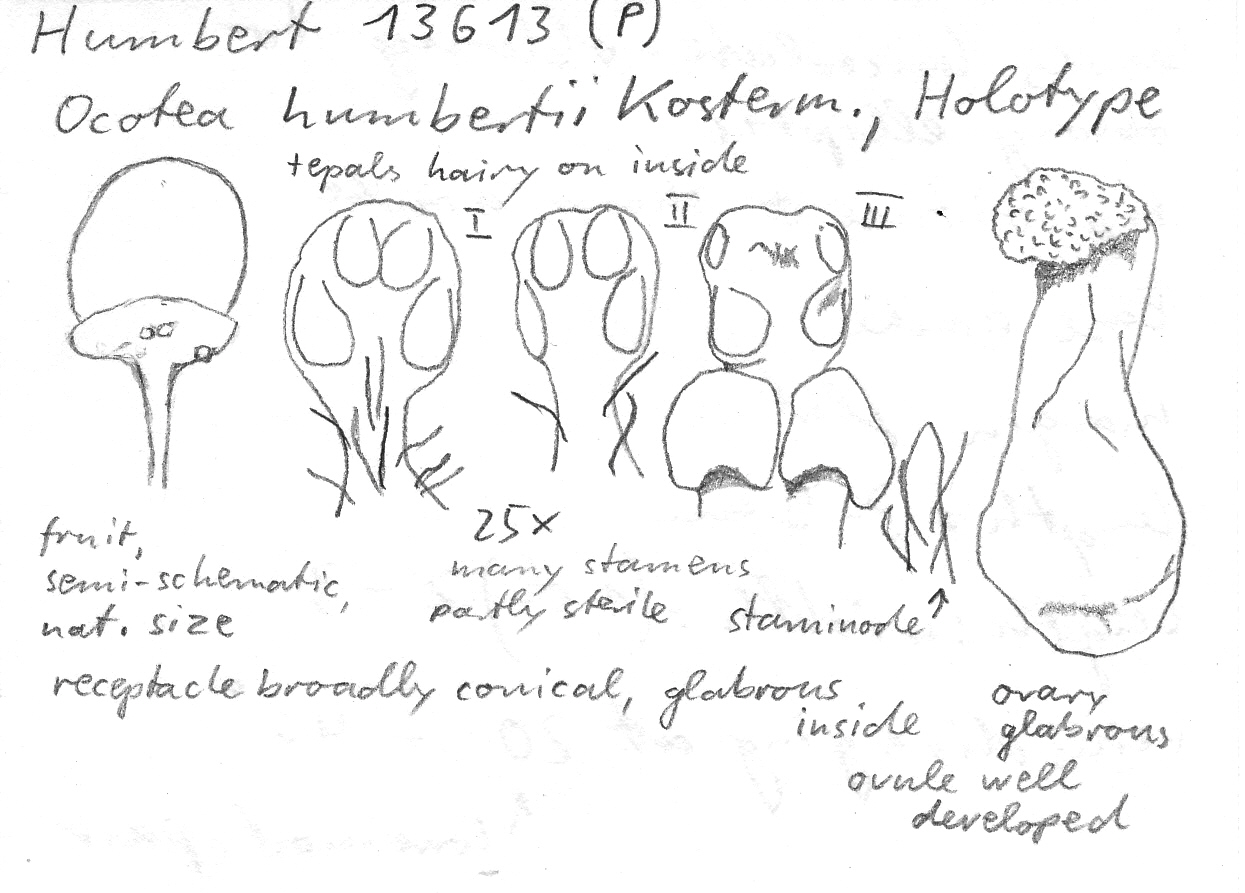 Humbert 13613 (P)
Ocotea humbertii Kosterm., Holotype
tepals hairy on inside
I
II
III
fruit,
semi-schematic,
nat. size
25x
many stamens
partly sterile
staminode
receptacle broadly conical, glabrous
inside
ovary
glabrous
ovule well
developed